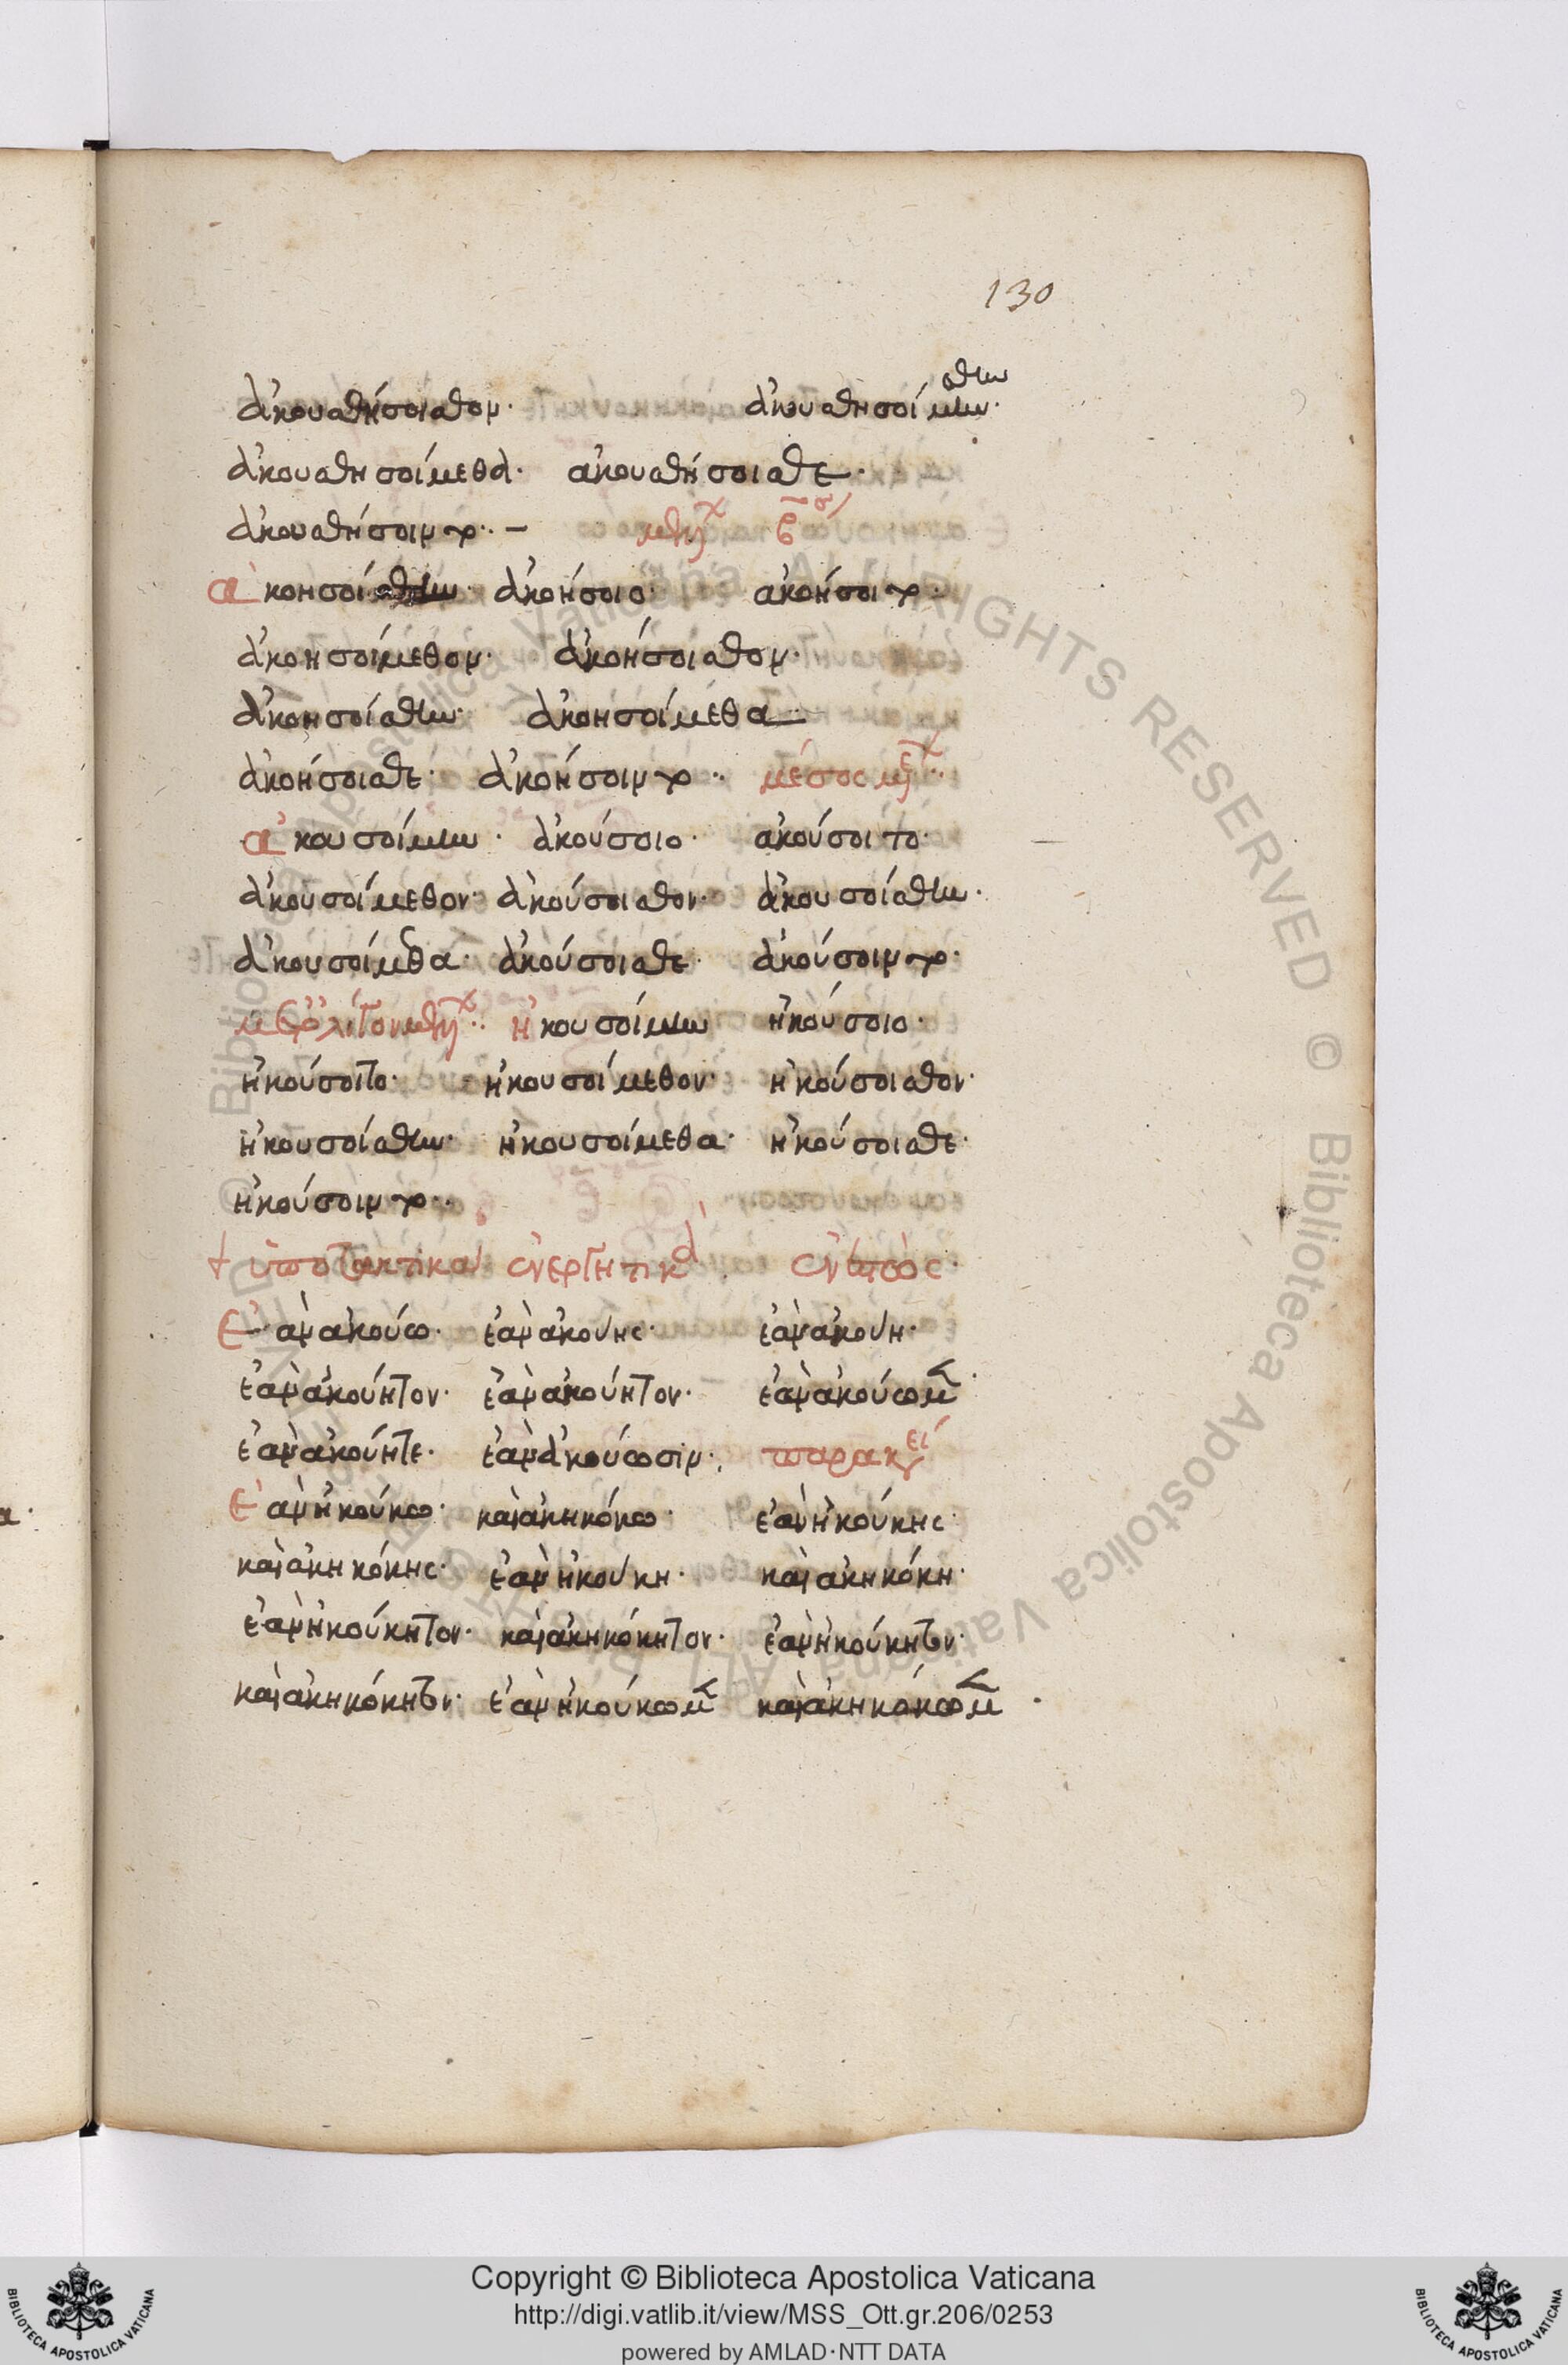 130
ἀκουσθήσοισθον· ἀκουσθησοίμην· σθην
ἀκουσθησοίμεθα· ἀκουσθήσοισθε·
ἀκουσθήσοιντο·
ἀκοησοίσθην· ἀκοήσοιο· ἀκοήσοιντο·
ἀκοησοίμεθον· ἀκοήσοισθον·
ἀκοησοίσθην· ἀκοησοίμεθα
ἀκοήσοισθε· ἀκοήσοιντο·· μέσος
ἀκουσοίμην· ἀκούσοιο· ἀκούσοιτο·
ἀκουσοίμεθον· ἀκούσοισθον· ἀκουσοίσθην·
ἀκουσοίμεθα· ἀκούσοισθε· ἀκούσοιντο·
ἠκουσοίμην ἠκούσοιο·
ἠκούσοιτο· ἠκουσοίμεθον· ἠκούσοισθον·
ἠκουσοίσθην· ἠκουσοίμεθα· ἠκούσοισθε·
ἠκούσοιντο··
ὑποτακτικὰ ἐνεργητικὰ ἐνεστὼς·
Ἐὰν ἀκούω· ἐὰν ἀκούης· ἐὰν ἀκούη·
ἐὰν ἀκούητον· ἐὰν ἀκούητον· ἐὰν ἀκούωμεν·
ἐὰν ἀκούητε· ἐὰν ἀκούωσιν· παρακει
Ἐὰν ἠκούκω· καὶ ἀκηκόκω· ἐὰν ἠκούκης·
καὶ ἀκηκόκης· ἐὰν ἠκούκη· καὶ ἀκηκόκη·
ἐὰν ἠκούκητον· καὶ ἀκηκόκητον· ἐὰν ἠκούκητον·
καὶ ἀκηκόκητον· ἐὰν ἠκούκωμεν καὶ ἀκηκόκωμεν·
© Biblioteca Apostolica Vaticana ALL RIGHTS RESERVED © Biblioteca Apostolica Vaticana
Copyright © Biblioteca Apostolica Vaticana
http://digi.vatlib.it/view/MSS_Ott.gr.206/0253
powered by AMLAD·NTT DATA
BIBLIOTECA APOSTOLICA VATICANA
BIBLIOTECA APOSTOLICA VATICANA